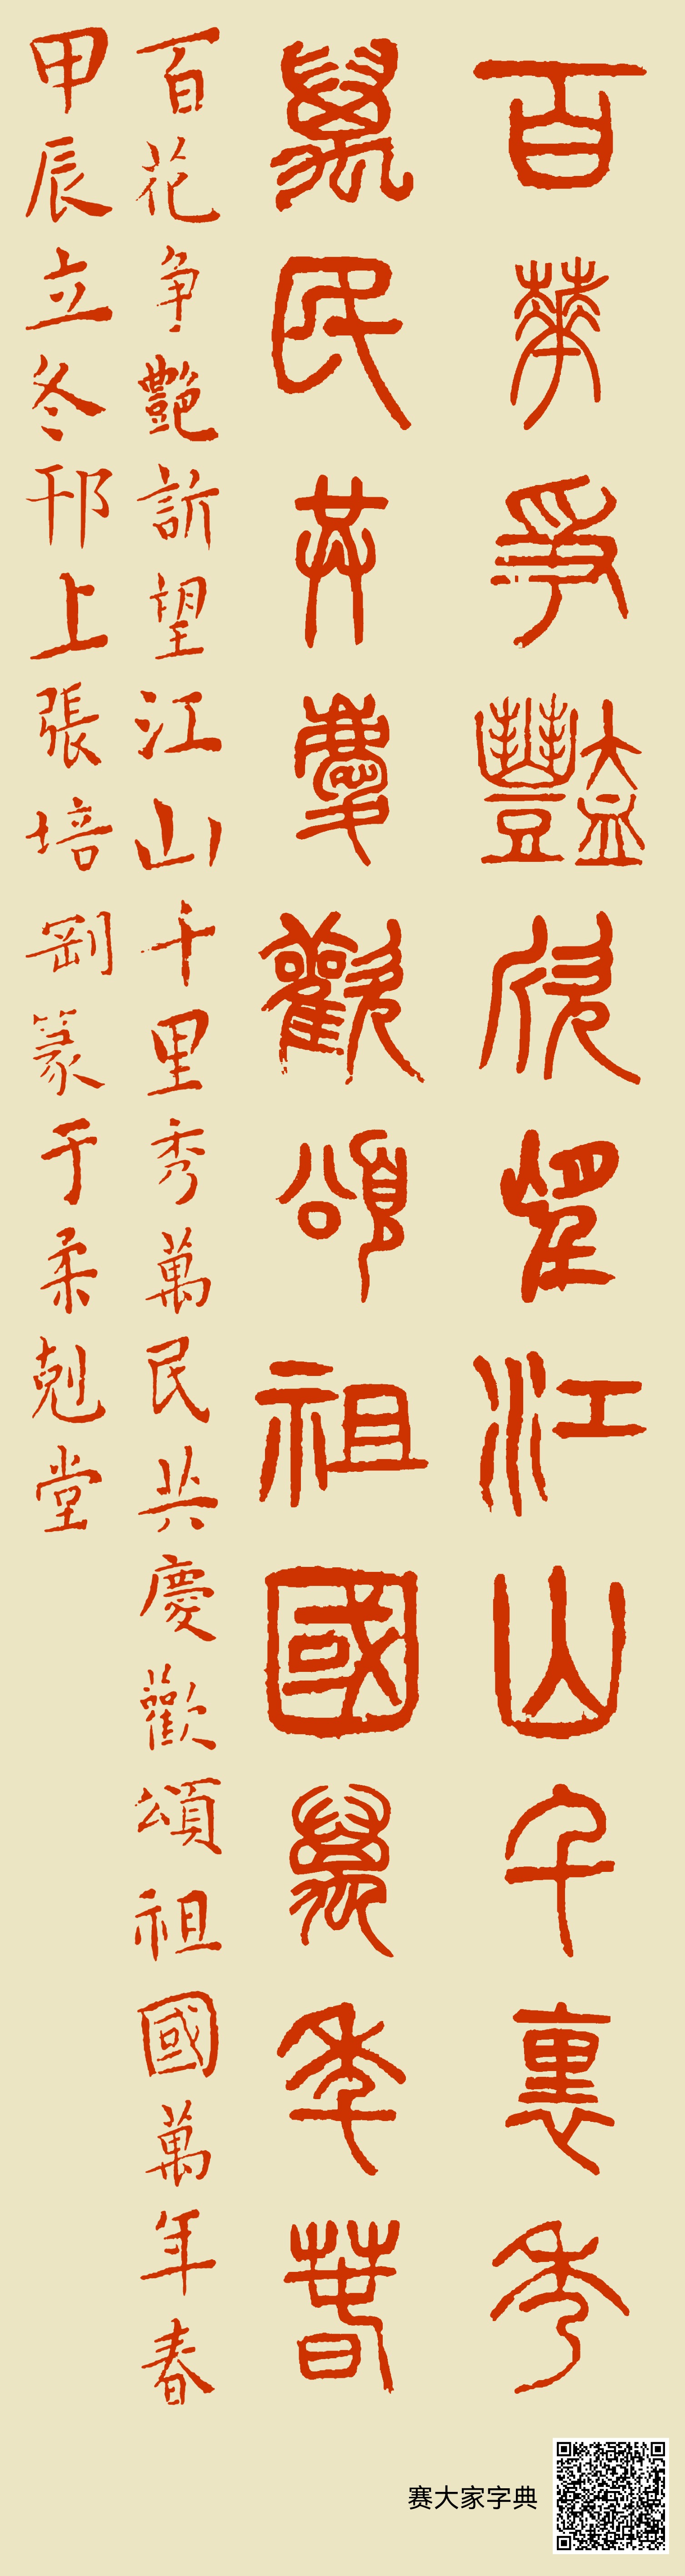 百華爭豔欣望江山千裏秀
萬民共慶歡頌祖國萬年春
百花争艷訢望江山千里秀萬民共慶歡頌祖國萬年春
甲辰立冬邗上張培剛篆于柔剋堂
赛大家字典